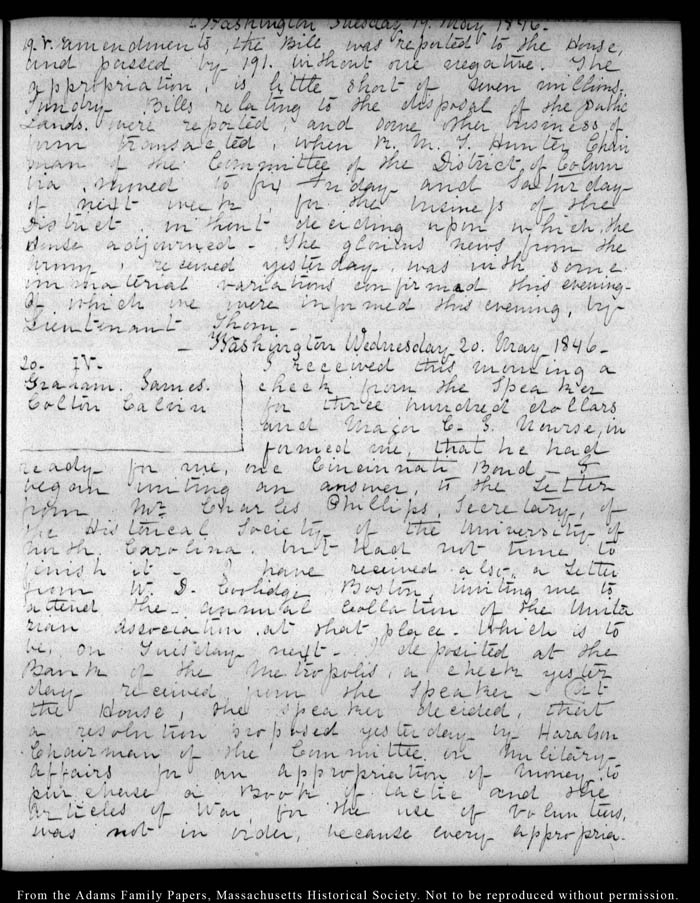 Washington Tuesday 19. May 1846-
19. V. amendments, the Bill was reported to the House,
and passed by 191. without one negative. The
appropriation, is little short of seven millions.
Sundry Bills relating to the disposal of the Public
Lands. were reported, and some other business of
form transacted, when R. M. T. Hunter Chair
man of the Committee of the District of Colum
bia, moved to fix Friday and Saturday
of next week, for the business of the
District without deciding upon which, the
House adjourned - The glorious news from the
army, received yesterday, was with some
immaterial variations confirmed this evening-
of which we were informed this evening, by
Lieutenant Thom -
- Washington Wednesday 20. May 1846-
20- IV-
Graham. James.
Colton Calvin
I received this morning a
check from the Speaker
for three hundred dollars
and Major C. J. Nourse, in
formed me, that he had
ready for me, one Cincinnati Bond - I
began writing an answer, to the Letter
from Mr Charles Phillips, Secretary, of
the Historical Society of the University of
North Carolina. but had not time to
finish it - I have received also, a Letter
from W. D. Coolidge Boston, inviting me to
attend the annual Collation of the Unita
rian Association at that place - Which is to
be, on Tuesday next - I deposited at the
Bank of the Metropolis, a check yester
day received from the Speaker - At
the House, the Speaker decided, that
a resolution proposed yesterday by Haralson
Chairman of the Committee on Military
Affairs for an appropriation of money, to
purchase a Book of tactic and the
articles of War, for the use of Volunteers,
was not in order, because every appropria-
From the Adams Family Papers, Massachusetts Historical Society. Not to be reproduced without permission.